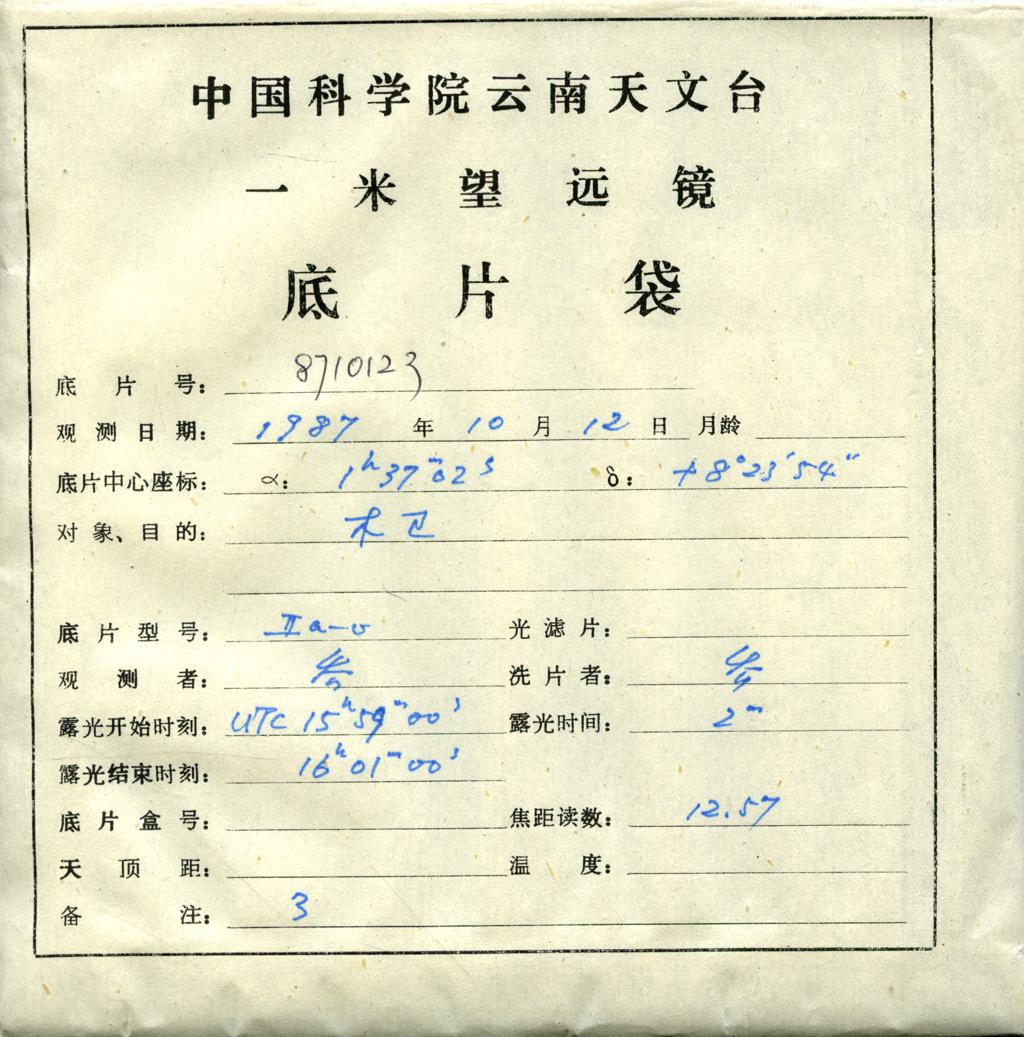 中国科学院云南天文台
一米望远镜
底片袋
底片号: 8710123
观测日期: 1987 年 10 月 12 日 月龄
底片中心座标: α: 1h37m02s δ: +8°23′54″
对象、目的: 木卫
底片型号: IIa-o 光滤片:
观测者: 洗片者:
露光开始时刻: UTC 15h59m00s 露光时间: 2m
露光结束时刻: 16h01m00s
底片盒号: 焦距读数: 12.57
天顶距: 温度:
备注: 3